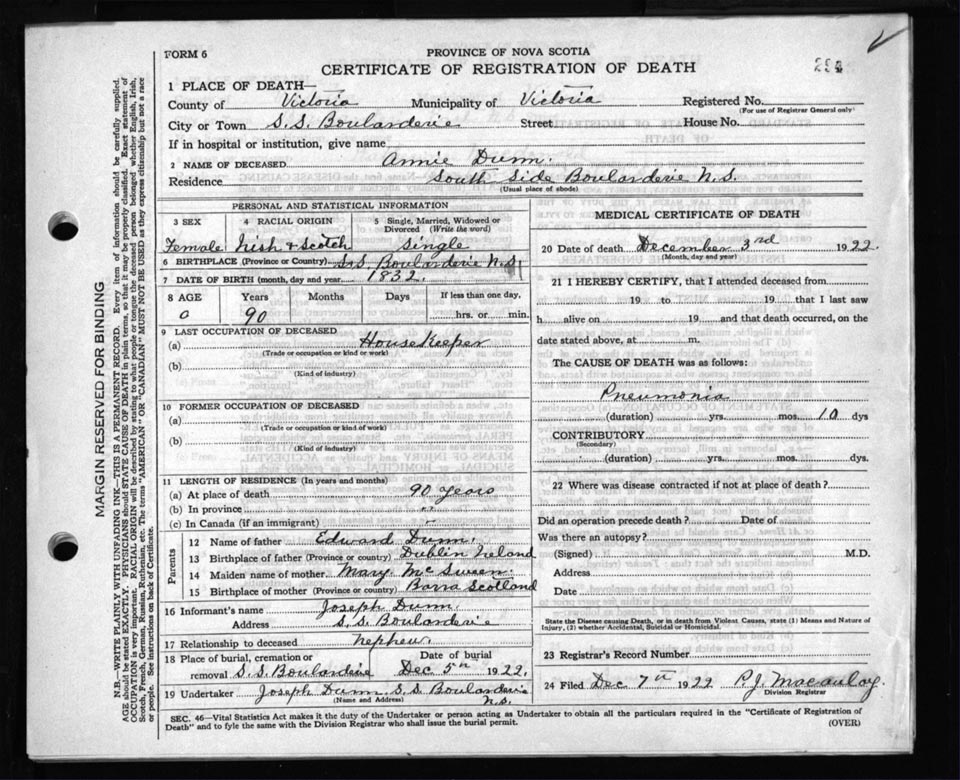 FORM 6
PROVINCE OF NOVA SCOTIA
CERTIFICATE OF REGISTRATION OF DEATH
1 PLACE OF DEATH
County of Victoria Municipality of Victoria Registered No.
(For use of Registrar General only)
City or Town S.S. Boularderie Street House No.
If in hospital or institution, give name
2 NAME OF DECEASED Annie Dunn.
Residence South Side Boularderie N.S.
(Usual place of abode)
PERSONAL AND STATISTICAL INFORMATION
3 SEX 4 RACIAL ORIGIN 5 Single, Married, Widowed or Divorced (Write the word)
Female Irish & Scotch Single
6 BIRTHPLACE (Province or Country) S.S. Boularderie N.S.
7 DATE OF BIRTH (month, day and year) 1832.
8 AGE Years Months Days If less than one day,
90 hrs. or min.
9 LAST OCCUPATION OF DECEASED
(a) House Keeper
(Trade or occupation or kind or work)
(b)
(Kind of industry)
10 FORMER OCCUPATION OF DECEASED
(a)
(Trade or occupation or kind of work)
(b)
(Kind of industry)
11 LENGTH OF RESIDENCE (In years and months)
(a) At place of death 90 years
(b) In province "
(c) In Canada (if an immigrant)
Parents
12 Name of father Edward Dunn.
13 Birthplace of father (Province or country) Dublin Ireland
14 Maiden name of mother Mary McSween.
15 Birthplace of mother (Province or country) Barra Scotland
16 Informant's name Joseph Dunn.
Address S.S. Boularderie
17 Relationship to deceased nephew.
18 Place of burial, cremation or removal S.S. Boularderie Date of burial Dec 5th 1922.
19 Undertaker Joseph Dunn S.S. Boularderie N.S.
(Name and Address)
MEDICAL CERTIFICATE OF DEATH
20 Date of death December 3rd 1922.
(Month, day and year)
21 I HEREBY CERTIFY, that I attended deceased from
19 to 19 that I last saw
h alive on 19 and that death occurred, on the
date stated above, at m.
The CAUSE OF DEATH was as follows:
Pneumonia
(duration) yrs. mos. 10 dys
CONTRIBUTORY
(Secondary)
(duration) yrs. mos. dys.
22 Where was disease contracted if not at place of death?
Did an operation precede death? Date of
Was there an autopsy?
(Signed) M.D.
Address
Date
State the Disease causing Death, or in death from Violent Causes, state (1) Means and Nature of Injury, (2) whether Accidental, Suicidal or Homicidal.
23 Registrar's Record Number
24 Filed Dec 7th 1922 P.J. Macaulay
Division Registrar
SEC. 46—Vital Statistics Act makes it the duty of the Undertaker or person acting as Undertaker to obtain all the particulars required in the "Certificate of Registration of
Death" and to fyle the same with the Division Registrar who shall issue the burial permit. (OVER)
MARGIN RESERVED FOR BINDING
N.B.—WRITE PLAINLY WITH UNFADING INK—THIS IS A PERMANENT RECORD. Every item of information should be carefully supplied.
AGE should be stated EXACTLY. PHYSICIANS should STATE CAUSE OF DEATH in plain terms, so that it may be properly classified. Exact statement of
OCCUPATION is very important. RACIAL ORIGIN will be described by stating to what people or tongue the deceased person belonged whether English, Irish,
Scotch, French, German, Russian, Ruthenian, etc. The terms "AMERICAN" OR "CANADIAN" MUST NOT BE USED as they express citizenship but not a race
or people. See instructions on back of Certificate.